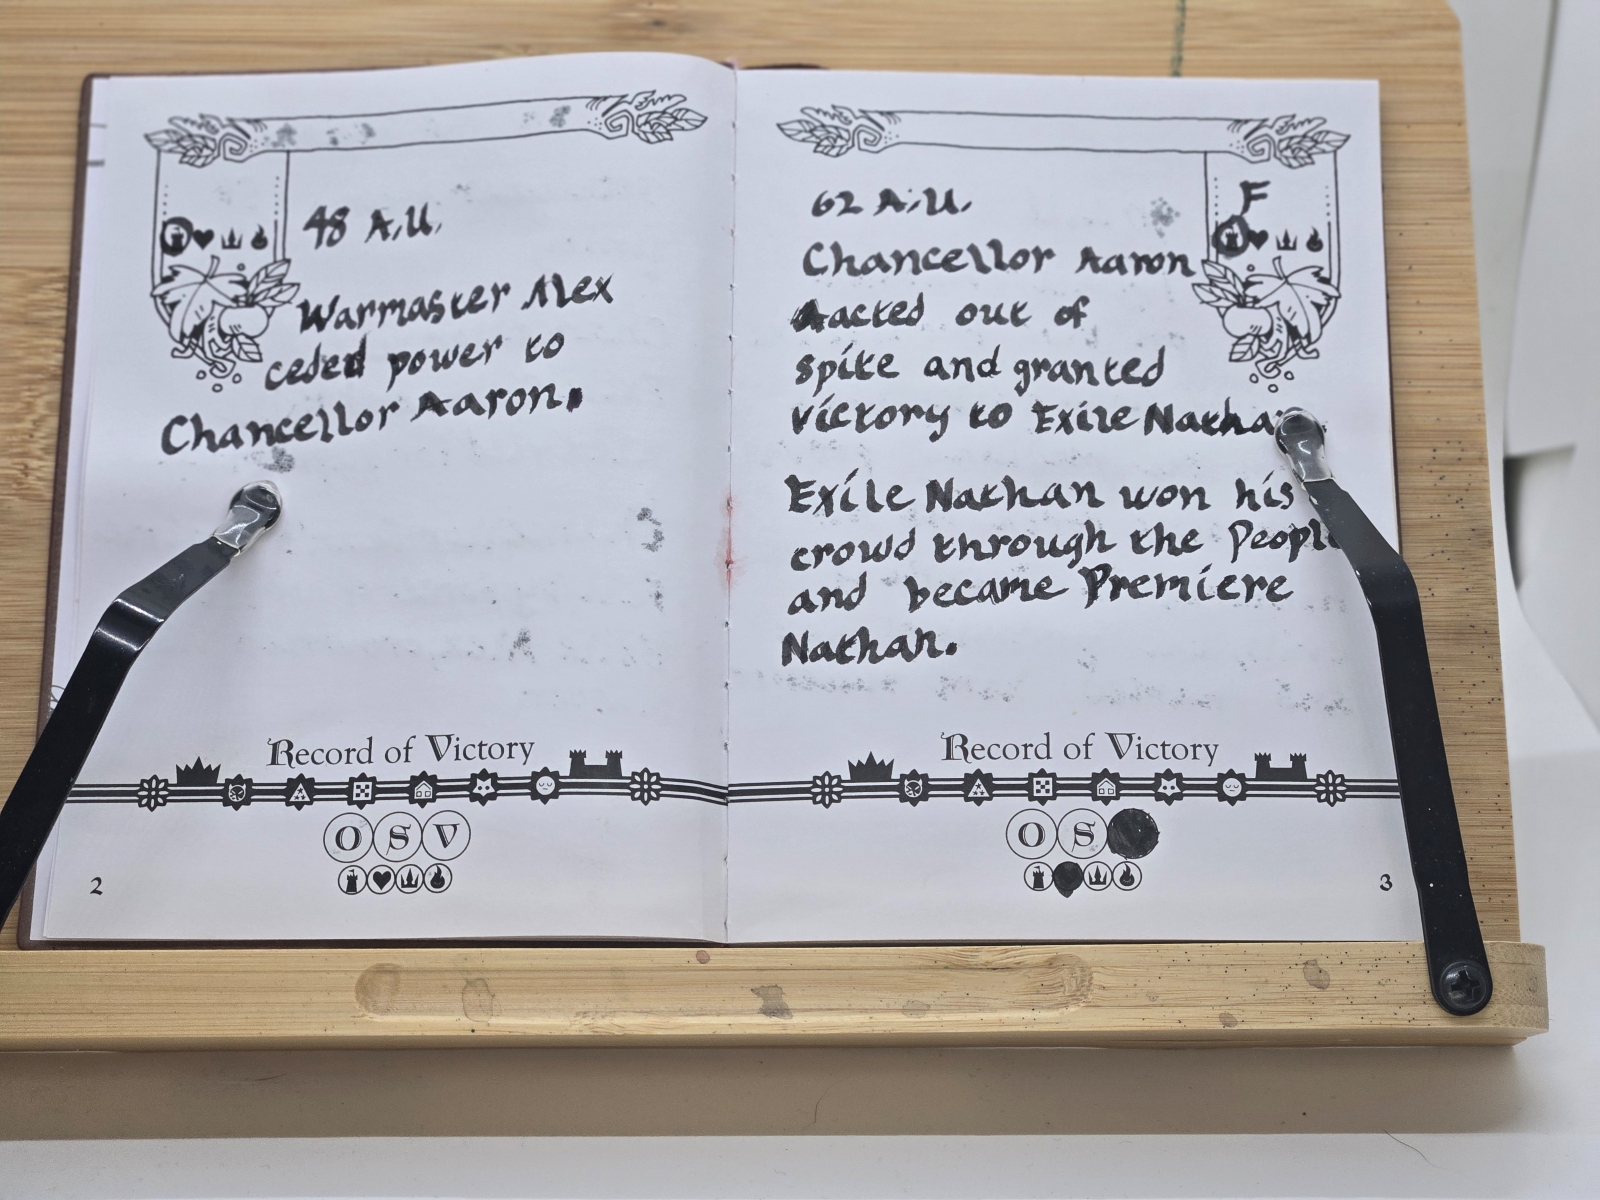 48 A.U.
Warmaster Alex
ceded power to
Chancellor Aaron.
Record of Victory
O S V
2
F
62 A.U.
Chancellor Aaron
acted out of
spite and granted
victory to Exile Nathan
Exile Nathan won his
crowd through the People
and became Premiere
Nathan.
Record of Victory
O S
3